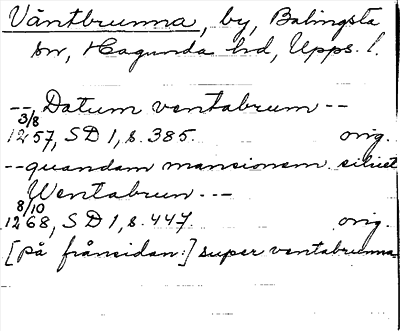 Väntbrunna, by, Balingsta
sn, Hagunda hd, Upps. l.
-- Datum ventabrum --
3/8
1257, SD 1, s. 385. orig.
-- quandam mansionem scilicet
Wentabrun ---
8/10
1268, SD 1, s. 447. orig.
[på frånsidan:] super ventabrunna